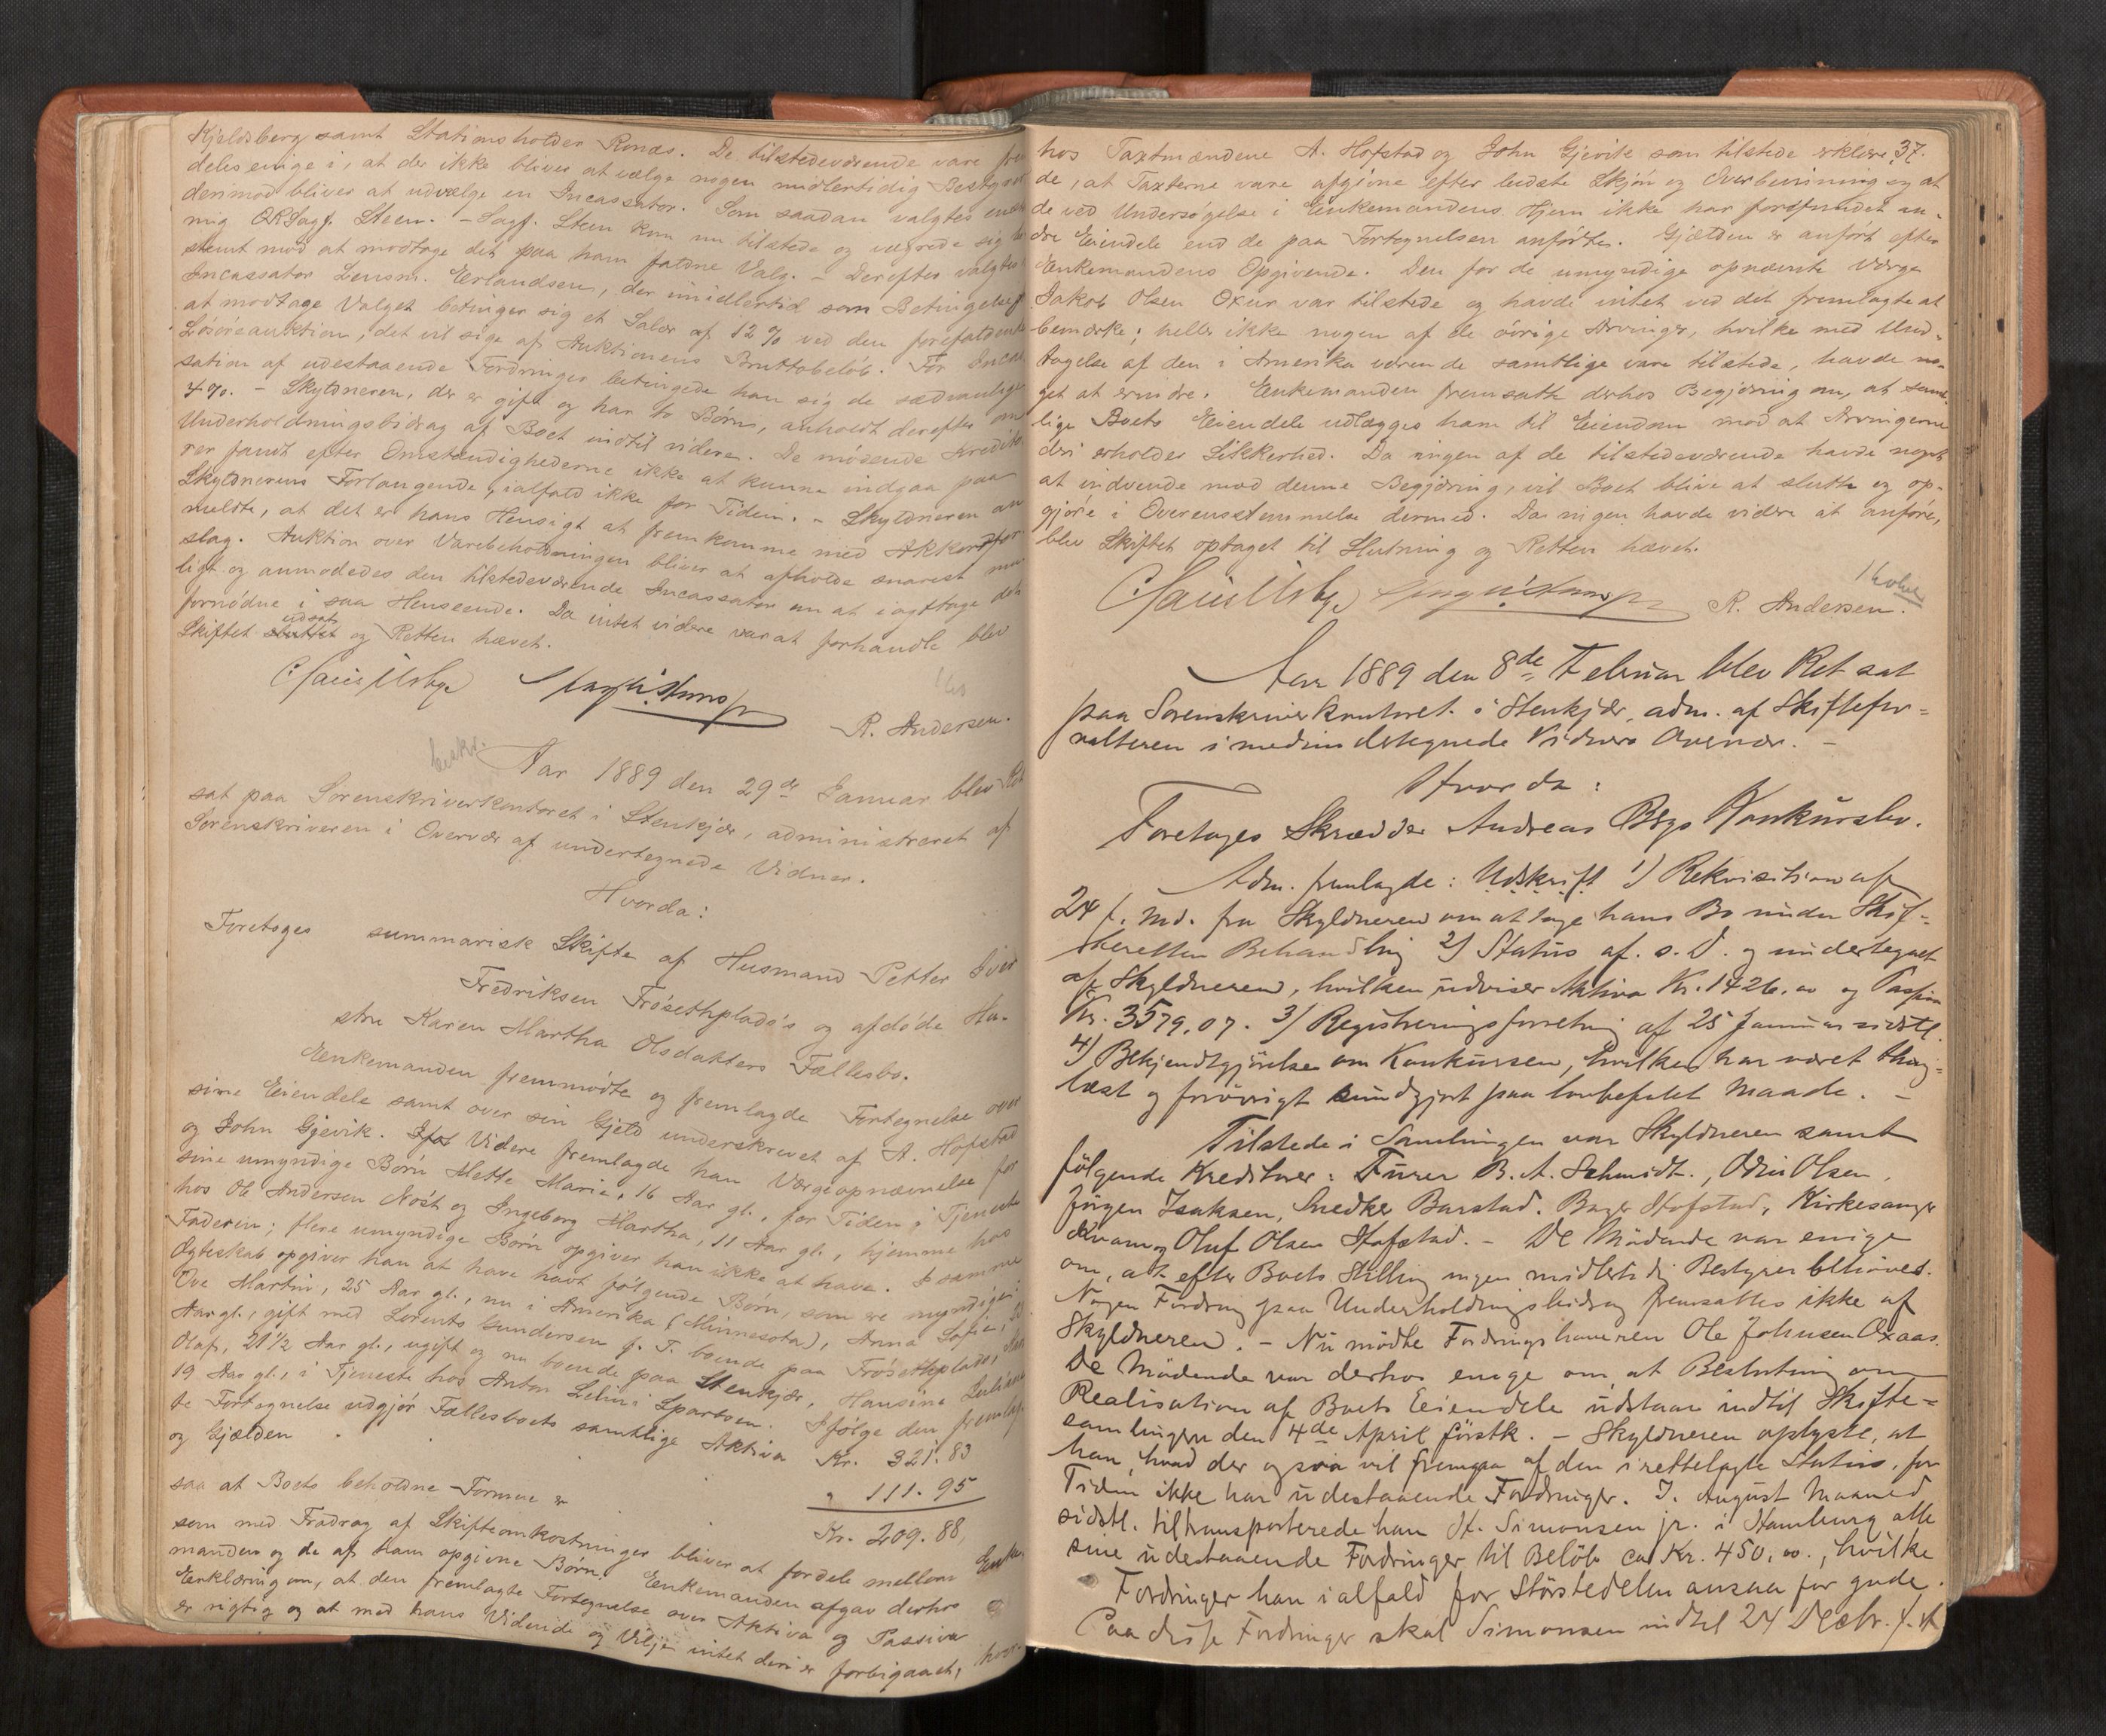 Kjeldsberg samt Stationsholder Ronæs. De tilstedeværende vare frem
deles enige i, at der ikke bliver at vælge nogen midlertidig Bestyrer
derimod bliver at udvælge en Incassator. Som saadan valgtes enstem
mig ORSagf. Steen. - Sagf. Steen kom nu tilstede og vægrede sig be
stemt mod at modtage det paa ham faldne Valg. - Derefter valgtes
Incassator Lensm. Erlandsen, der imidlertid som Betingelse
at modtage Valget betinger sig et Salær af 12 % ved den forefaldende
Løsøreauktion, det vil sige af Auktionens Bruttobeløb. For Incas
sation af udestaaende Fordringer betingede han sig de sædvanlige
4 %. - Skyldneren, der er gift og har to Børn, anholdt derefter om
Underholdningsbidrag af Boet indtil videre. De mødende Kredito
rer fandt efter Omstændighederne ikke at kunne indgaa paa
Skyldnerens Forlangende, ialfald ikke for Tiden. - Skyldneren an
meldte, at det er hans Hensigt at fremkomme med Akkordfor
slag. Auktion over Varebeholdningen bliver at afholde snarest mu
ligt og anmodedes den tilstedeværende Incassator om at iagttage det
fornødne i saa Henseende. Da intet videre var at forhandle blev
udsat
Skiftet sluttet og Retten hævet.
R. Andersen.
beskr.
Aar 1889 den 29de Januar blev Ret
sat paa Sorenskriverkontoret i Stenkjær, administreret af
Sorenskriveren i Overvær af undertegnede Vidner.
Hvorda:
Foretoges summarisk Skifte af Husmand Petter Iver
Fredriksen Frøsethplads's og afdøde Hu-
stru Karen Martha Olsdatters Fællesbo.
Enkemanden fremmødte og fremlagde Fortegnelse over
sine Eiendele samt over sin Gjeld underskrevet af A. Hofstad
og John Gjevik. Iføl Videre fremlagde han Værgeopnævnelse for
sine umyndige Børn Mette Marie, 16 Aar gl., for Tiden i Tjeneste
hos Ole Andersen Nøst og Ingeborg Martha, 11 Aar gl., hjemme hos
Faderen; flere umyndige Børn opgiver han ikke at have. I samme
Ægteskab opgiver han at have havt følgende Børn, som ere myndige:
Ove Martin, 25 Aar gl., nu i Amerika (Minnesota), Anna Sofie,
Aar gl., gift med Lorents Gundersen f. T. boende paa Frøsethplads,
Olaf, 21 1/2 Aar gl., ugift og nu boende paa Stenkjær, Hansine Juliane
19 Aar gl., i Tjeneste hos Anton Spartsen. Ifølge den fremlag
te Fortegnelse udgjør Fællesboets samtlige Aktiva Kr. 321.83
og Gjælden " 111.95
saa at Boets beholdne Formue er Kr. 209.88,
som med Fradrag af Skifteomkostninger bliver at fordele mellem Enke
manden og de af ham opgivne Børn. Enkemanden afgav derhos
Erklæring om, at den fremlagte Fortegnelse over Aktiva og Passiva
er rigtig og at med hans Vidende og Vilje intet deri er forbigaaet, hvor-
37.
hos Taxtmændene A. Hofstad og John Gjevik som tilstede erklære
de, at Taxterne vare afgivne efter bedste Skjøn og Overbevisning og at
de ved Undersøgelse i Enkemandens Hjem ikke har forefundet an-
dre Eiendele end de paa Fortegnelsen anførte. Gjælden er anført efter
Enkemandens Opgivende. Den for de umyndige opnævnte Værge
Jakob Olsen Oxur var tilstede og havde intet ved det fremlagte at
bemærke; heller ikke nogen af de øvrige Arvinger, hvilke med Und-
tagelse af den i Amerika værende samtlige vare tilstede, havde no-
get at erindre. Enkemanden fremsatte derhos Begjæring om, at samt-
lige Boets Eiendele udlægges ham til Eiendom mod at Arvingerne
deri erholder Sikkerhed. Da ingen af de tilstedeværende havde noget
at indvende mod denne Begjæring, vil Boet blive at slutte og op-
gjøre i Overensstemmelse dermed. Da ingen havde videre at anføre,
blev Skiftet optaget til Slutning og Retten hævet.
R. Andersen.
Aar 1889 den 8de Februar blev Ret sat
paa Sorenskriverkontoret i Stenkjær, adm. af Skiftefor=
valteren i medundertegnede Vidners Overvær. -
Hvorda:
Foretoges Skrædder Andreas Bergs Konkursbo.
Adm. fremlagde: Udskrift 1) Rekvisition af
24 f. Md. fra Skyldneren om at tage hans Bo under Skif=
teretten Behandling 2) Status af s. D. og undertegnet
af Skyldneren, hvilken udviser Aktiva Kr. 1426.00 og Passiva
Kr. 3579,07. 3) Registreringsforretning af 25 Januar sidstl.
4) Bekjendtgjørelse om Konkursen, hvilken har været thing=
læst og forøvrigt kundgjort paa lovbefalet Maade. -
Tilstede i Samlingen var Skyldneren samt
følgende Kreditorer: Furer B. A. Schmidt., Odin Olsen,
Jørgen Isaksen, Snedker Barstad. Bager Hofstad, Kirkesanger
Kvam og Oluf Olsen Hofstad. - De Mødende var enige
om, at efter Boets Stilling ingen midlertidig Bestyrer behøves.
Nogen Fordring paa Underholdningsbidrag fremsattes ikke af
Skyldneren. - Nu mødte Fordringshaveren Ole Johnsen Oxaas.
De Mødende var derhos enige om, at Beslutning om
Realisation af Boets Eiendele udstaar indtil Skifte=
samlingen den 4de April førstk. - Skyldneren oplyste, at
han, hvad der ogsaa vil fremgaa af den irettelagte Status, for
Tiden ikke har udestaaende Fordringer. I. August Maaned
sidstl. tiltransporterede han H. Simonsen jr. i Hamburg alle
sine udestaaende Fordringer til Beløb ca Kr. 450,00., hvilke
Fordringer han ialfald for Størstedelen ansaa for gode.
Paa disse Fordringer skal Simonsen indtil 24 Decbr. f. A